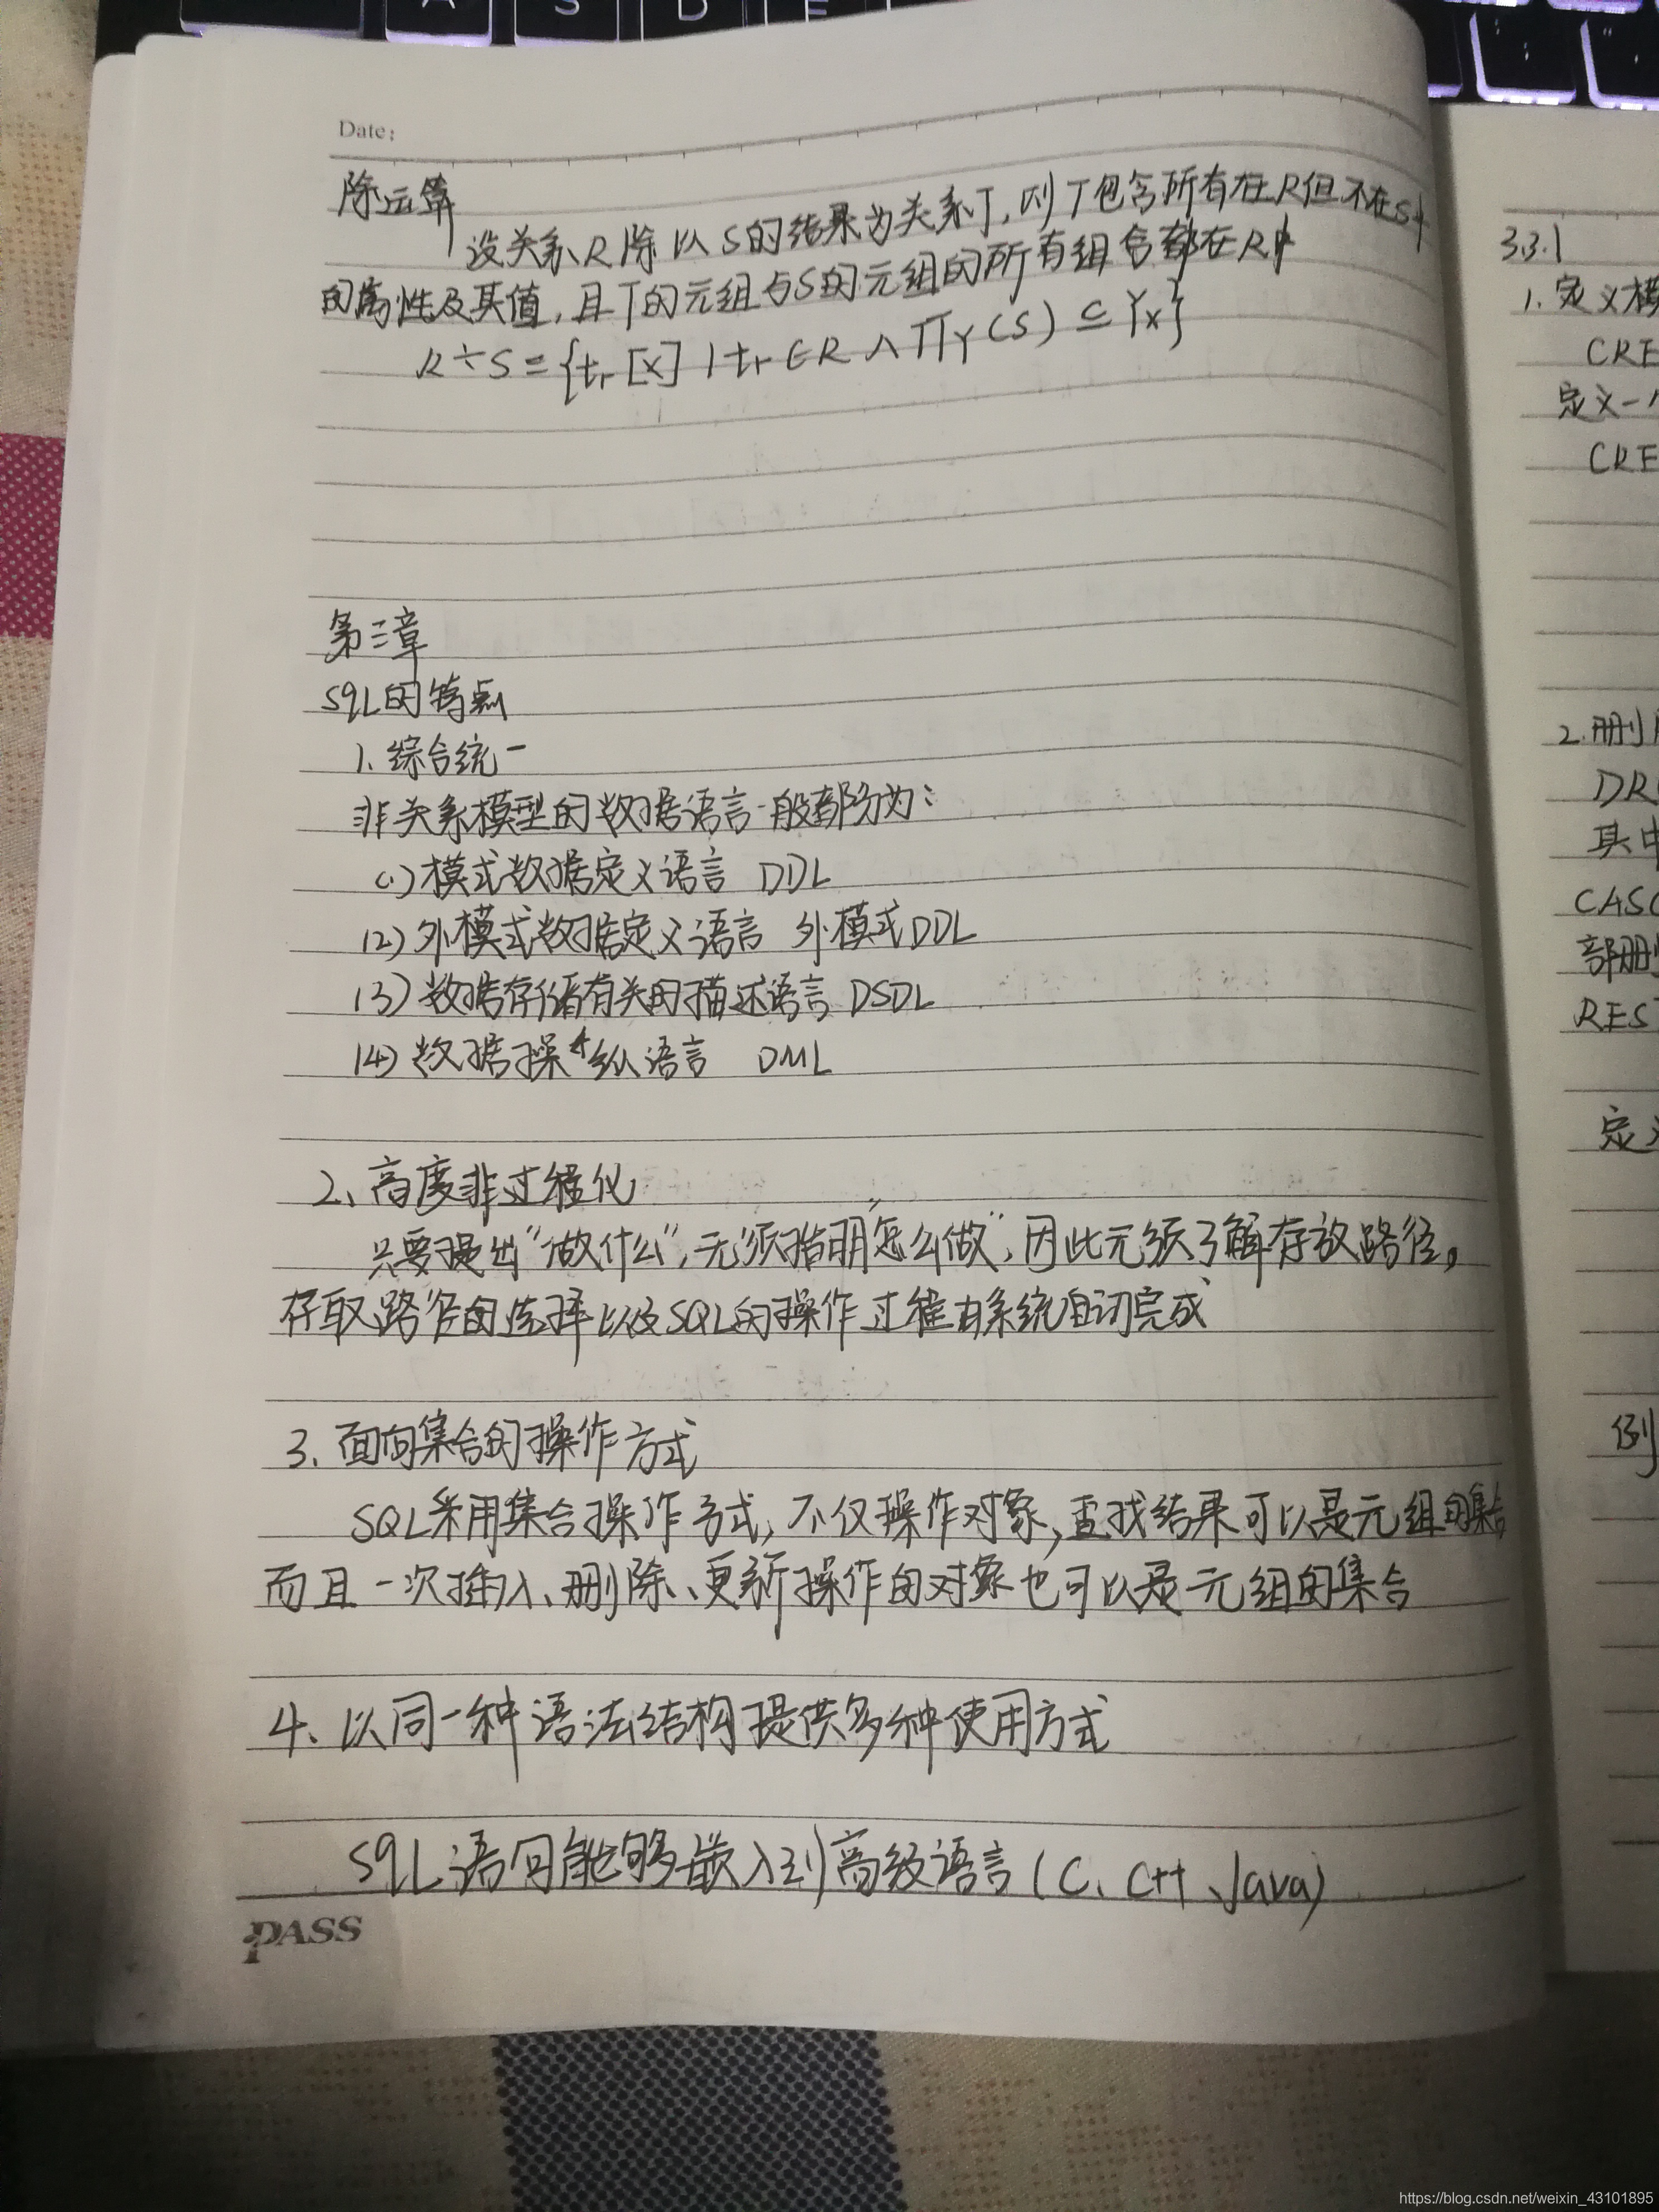 A S D F
Date:
除运算
设关系R除以S的结果为关系T,则T包含所有在R但不在S中
的属性及其值,且T的元组与S的元组的所有组合都在R中
R÷S={tr[X]|tr∈R∧ΠY(S)⊆Yx}
第三章
SQL的特点
1.综合统一
非关系模型的数据语言一般都分为:
(1)模式数据定义语言 DDL
(2)外模式数据定义语言 外模式DDL
(3)数据存储有关的描述语言 DSDL
(4)数据操纵语言 DML
2、高度非过程化
只要提出"做什么",无须指明"怎么做",因此无须了解存放路径。
存取路径的选择以及SQL的操作过程由系统自动完成
3、面向集合的操作方式
SQL采用集合操作方式,不仅操作对象,查找结果可以是元组的集合
而且一次插入、删除、更新操作的对象也可以是元组的集合
4、以同一种语法结构提供多种使用方式
SQL语句能够嵌入到高级语言(C、C++、Java)
PASS
3.3.1
1.定义模
CRE
定义一个
CRE
2.删
DR
其中
CASC
部删
REST
定义
例
https://blog.csdn.net/weixin_43101895